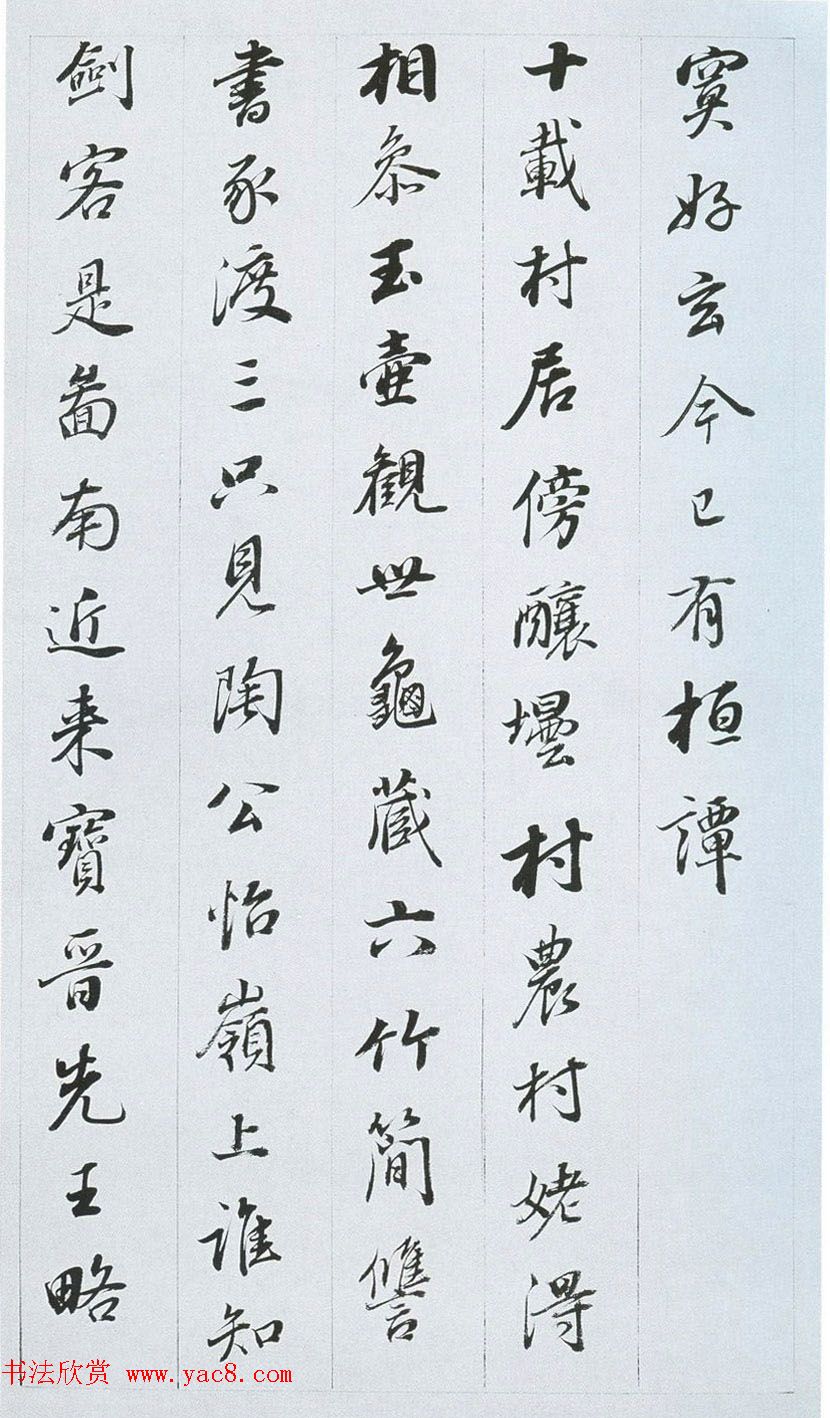 寞好玄今已有桓譚
十載村居傍釀壜村農村姥得
相參玉壺觀世龜藏六竹簡讐
書豕渡三只見陶公怡嶺上誰知
劍客是啚南近来寶晉先王略
书法欣赏 www.yac8.com